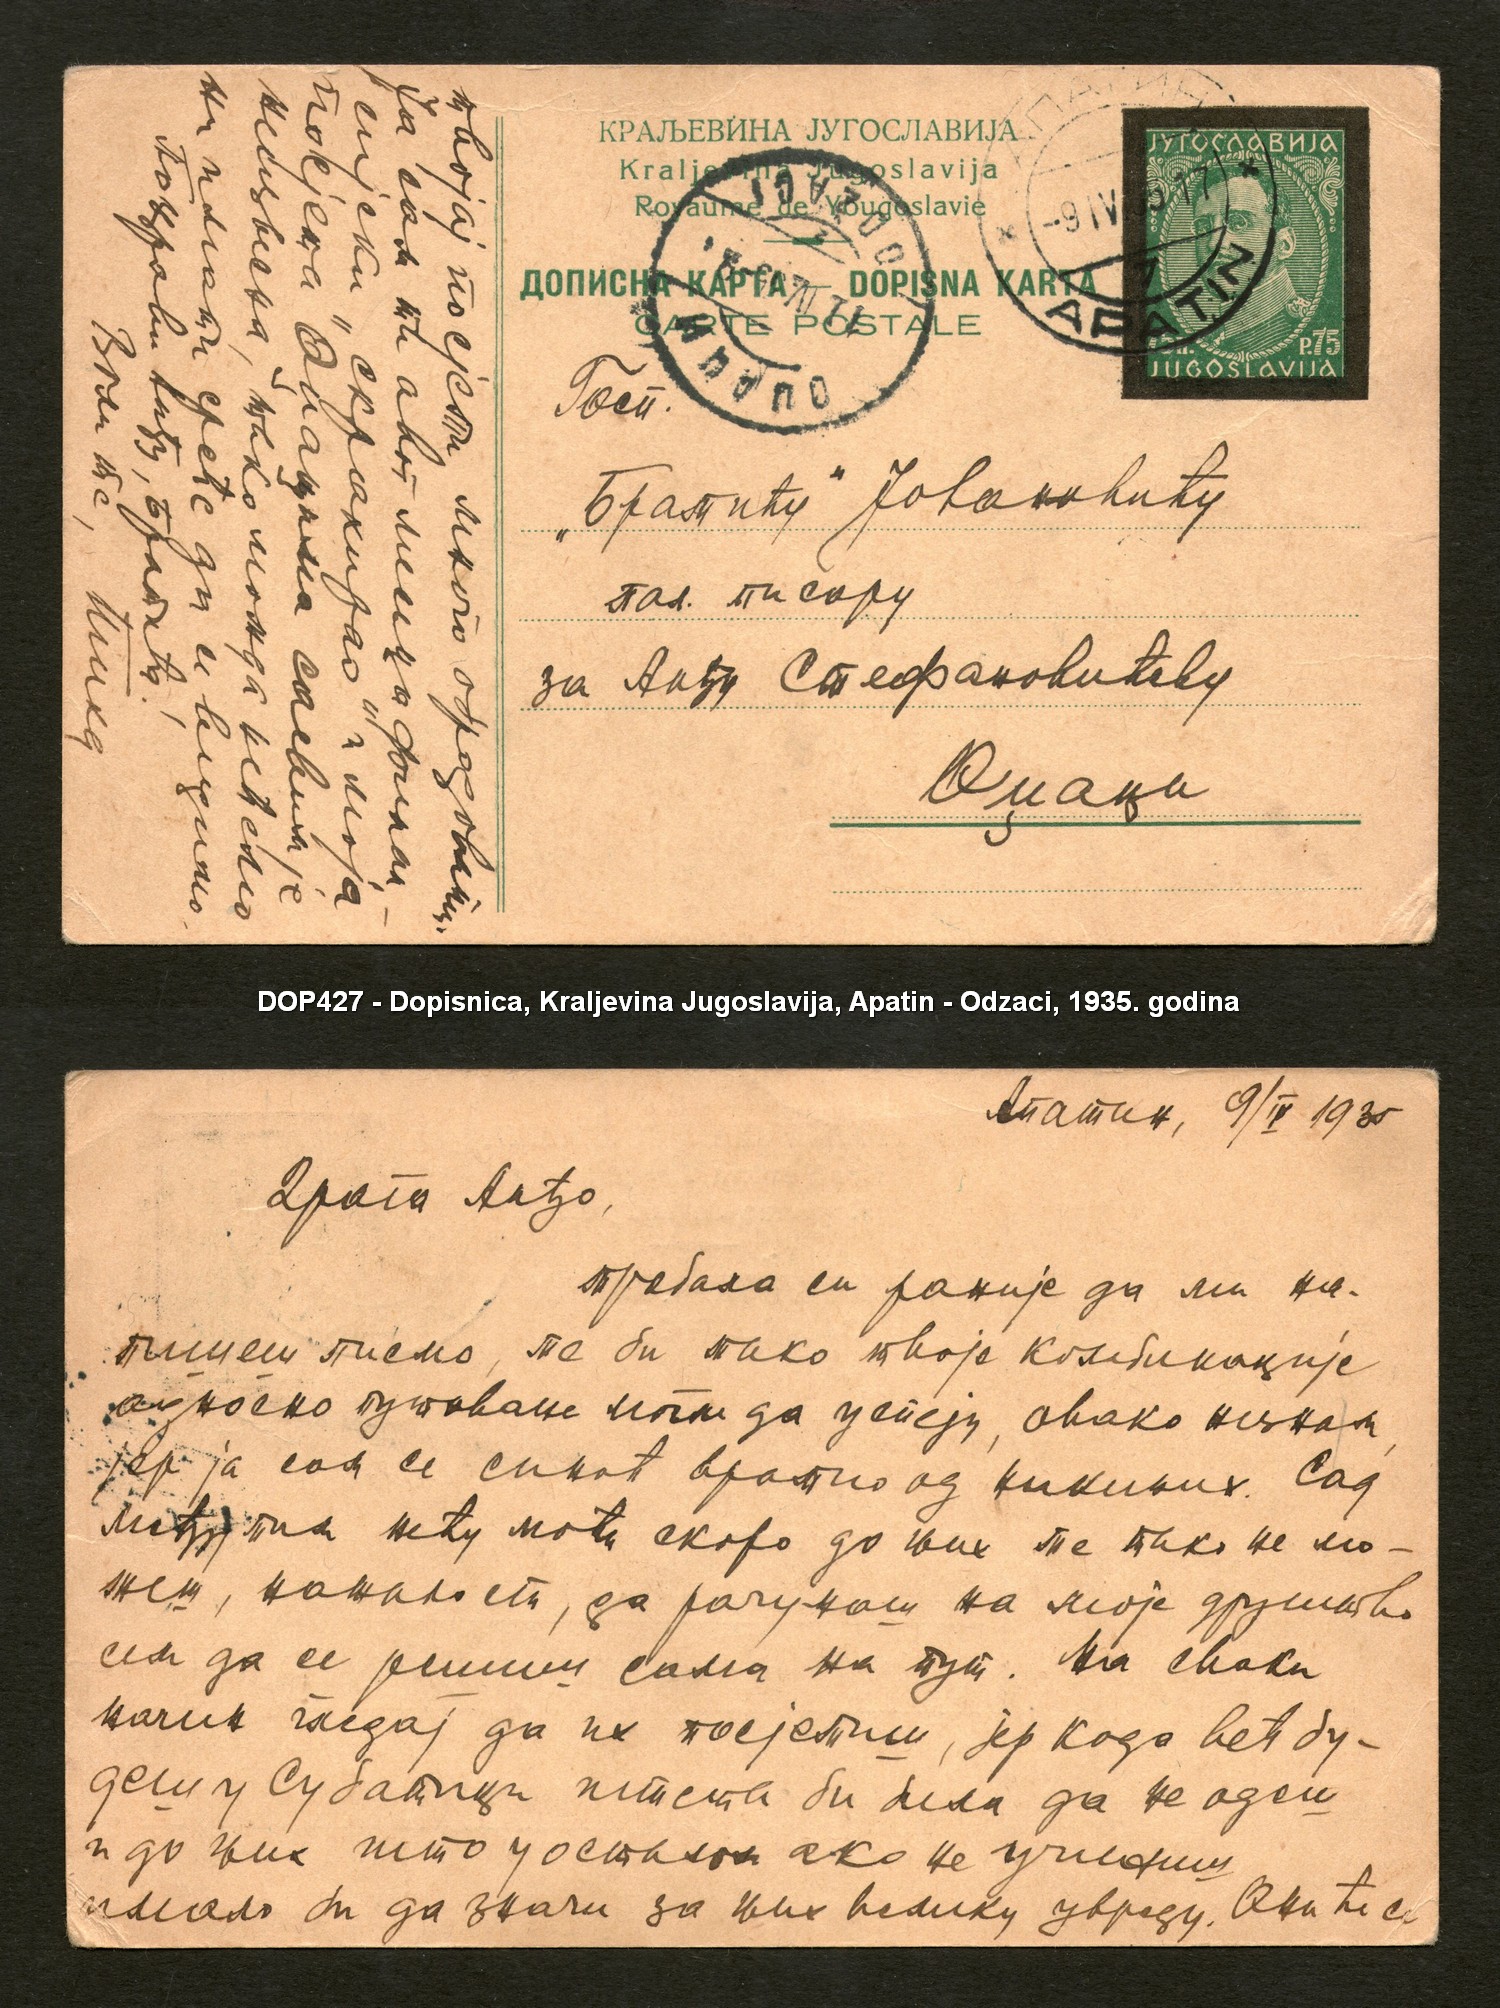 КРАЉЕВИНА ЈУГОСЛАВИЈА
Kraljevina Jugoslavija
Royaume de Yougoslavie
ДОПИСНА КАРТА — DOPISNA KARTA
CARTE POSTALE
ЈУГОСЛАВИЈА
P.75
JUGOSLAVIJA
APATIN
ОЏАЦИ
ODŽACI
Госп.
„Братићу“ Јовановићу
пол. писару
за Анђу Стефановићеву
Оџаци
твојој посјети много орадовати.
Ја сам ти овог
сијски „скрахирао“ и моја
посјета Оџацима сасвим је
неизвјесна, тако можда нећемо
ни имати среће да се видимо.
Поздрави тату, Братића!
Воли те,
DOP427 - Dopisnica, Kraljevina Jugoslavija, Apatin - Odzaci, 1935. godina
Апатин, 9/IV 1935
Драга Анђо,
требала си раније да ми на-
пишеш писмо, те би тако твоје комбинације
односно путовање могле да успеју, овако незнам,
јер ја сам се синоћ вратио од њихних. Сад
међутим нећу моћи скоро до њих те тако не мо-
жеш, нажалост, да рачунаш на моје друштво
сем да се решиш сама на пут. На сваки
начин гледај да их посјетиш, јер када већ бу-
деш у Суботици штета би била да не одеш
и до њих што у осталом ако не учиниш
имало би да значи за њих велику увреду. Они ће се